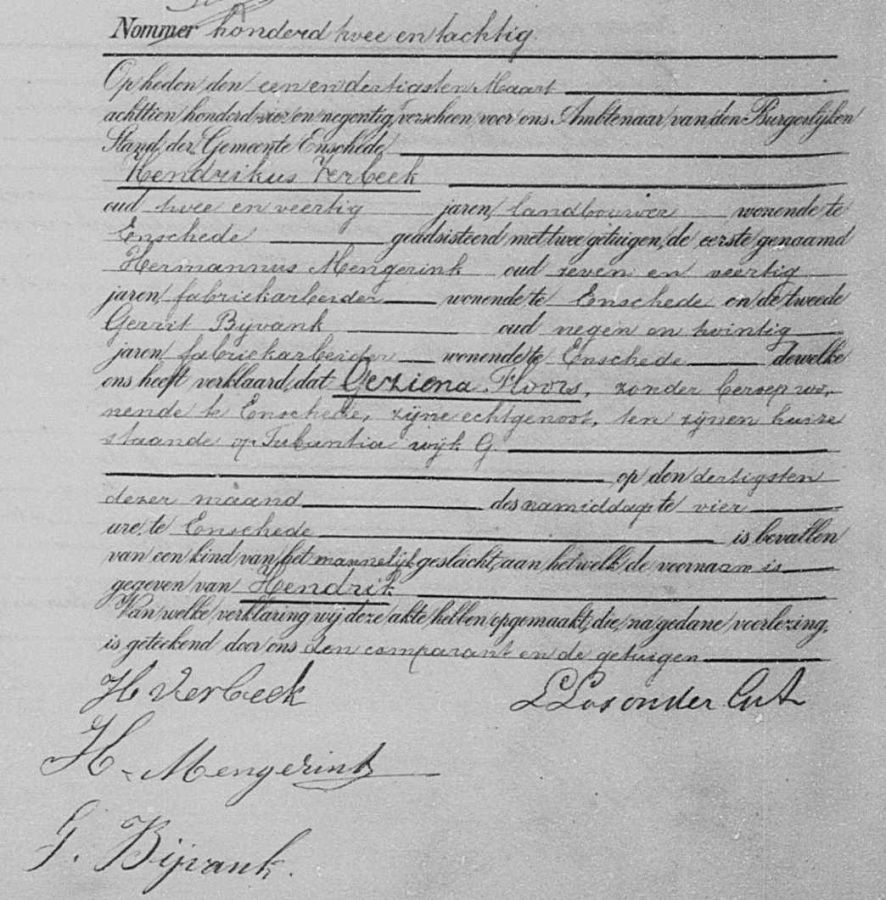 Nommer honderd twee en tachtig.
Op heden den een en dertigsten Maart
achttien honderd vier en negentig, verscheen voor ons Ambtenaar van den Burgerlijken
Stand der Gemeente Enschede
Hendrikus Verbeek
oud twee en veertig jaren, landbouwer wonende te
Enschede geadsisteerd met twee getuigen, de eerste genaamd
Hermannus Mengerink oud zeven en veertig
jaren, fabriekarbeider wonende te Enschede en de tweede
Gerrit Byvank oud negen en twintig
jaren, fabriekarbeider wonende te Enschede dewelke
ons heeft verklaard, dat Geziena Floors, zonder beroep wo-
nende te Enschede, zijne echtgenoot, ten zijnen huize
staande op Tubantia wijk G.
op den dertigsten
dezer maand des namiddags te vier
ure, te Enschede is bevallen
van een kind van het mannelijk geslacht, aan hetwelk de voornaam is
gegeven van Hendrik
Van welke verklaring wij deze akte hebben opgemaakt, die na gedane voorlezing,
is geteekend door ons den comparant en de getuigen
H Verbeek
H. Mengerink
G. Bijvank.